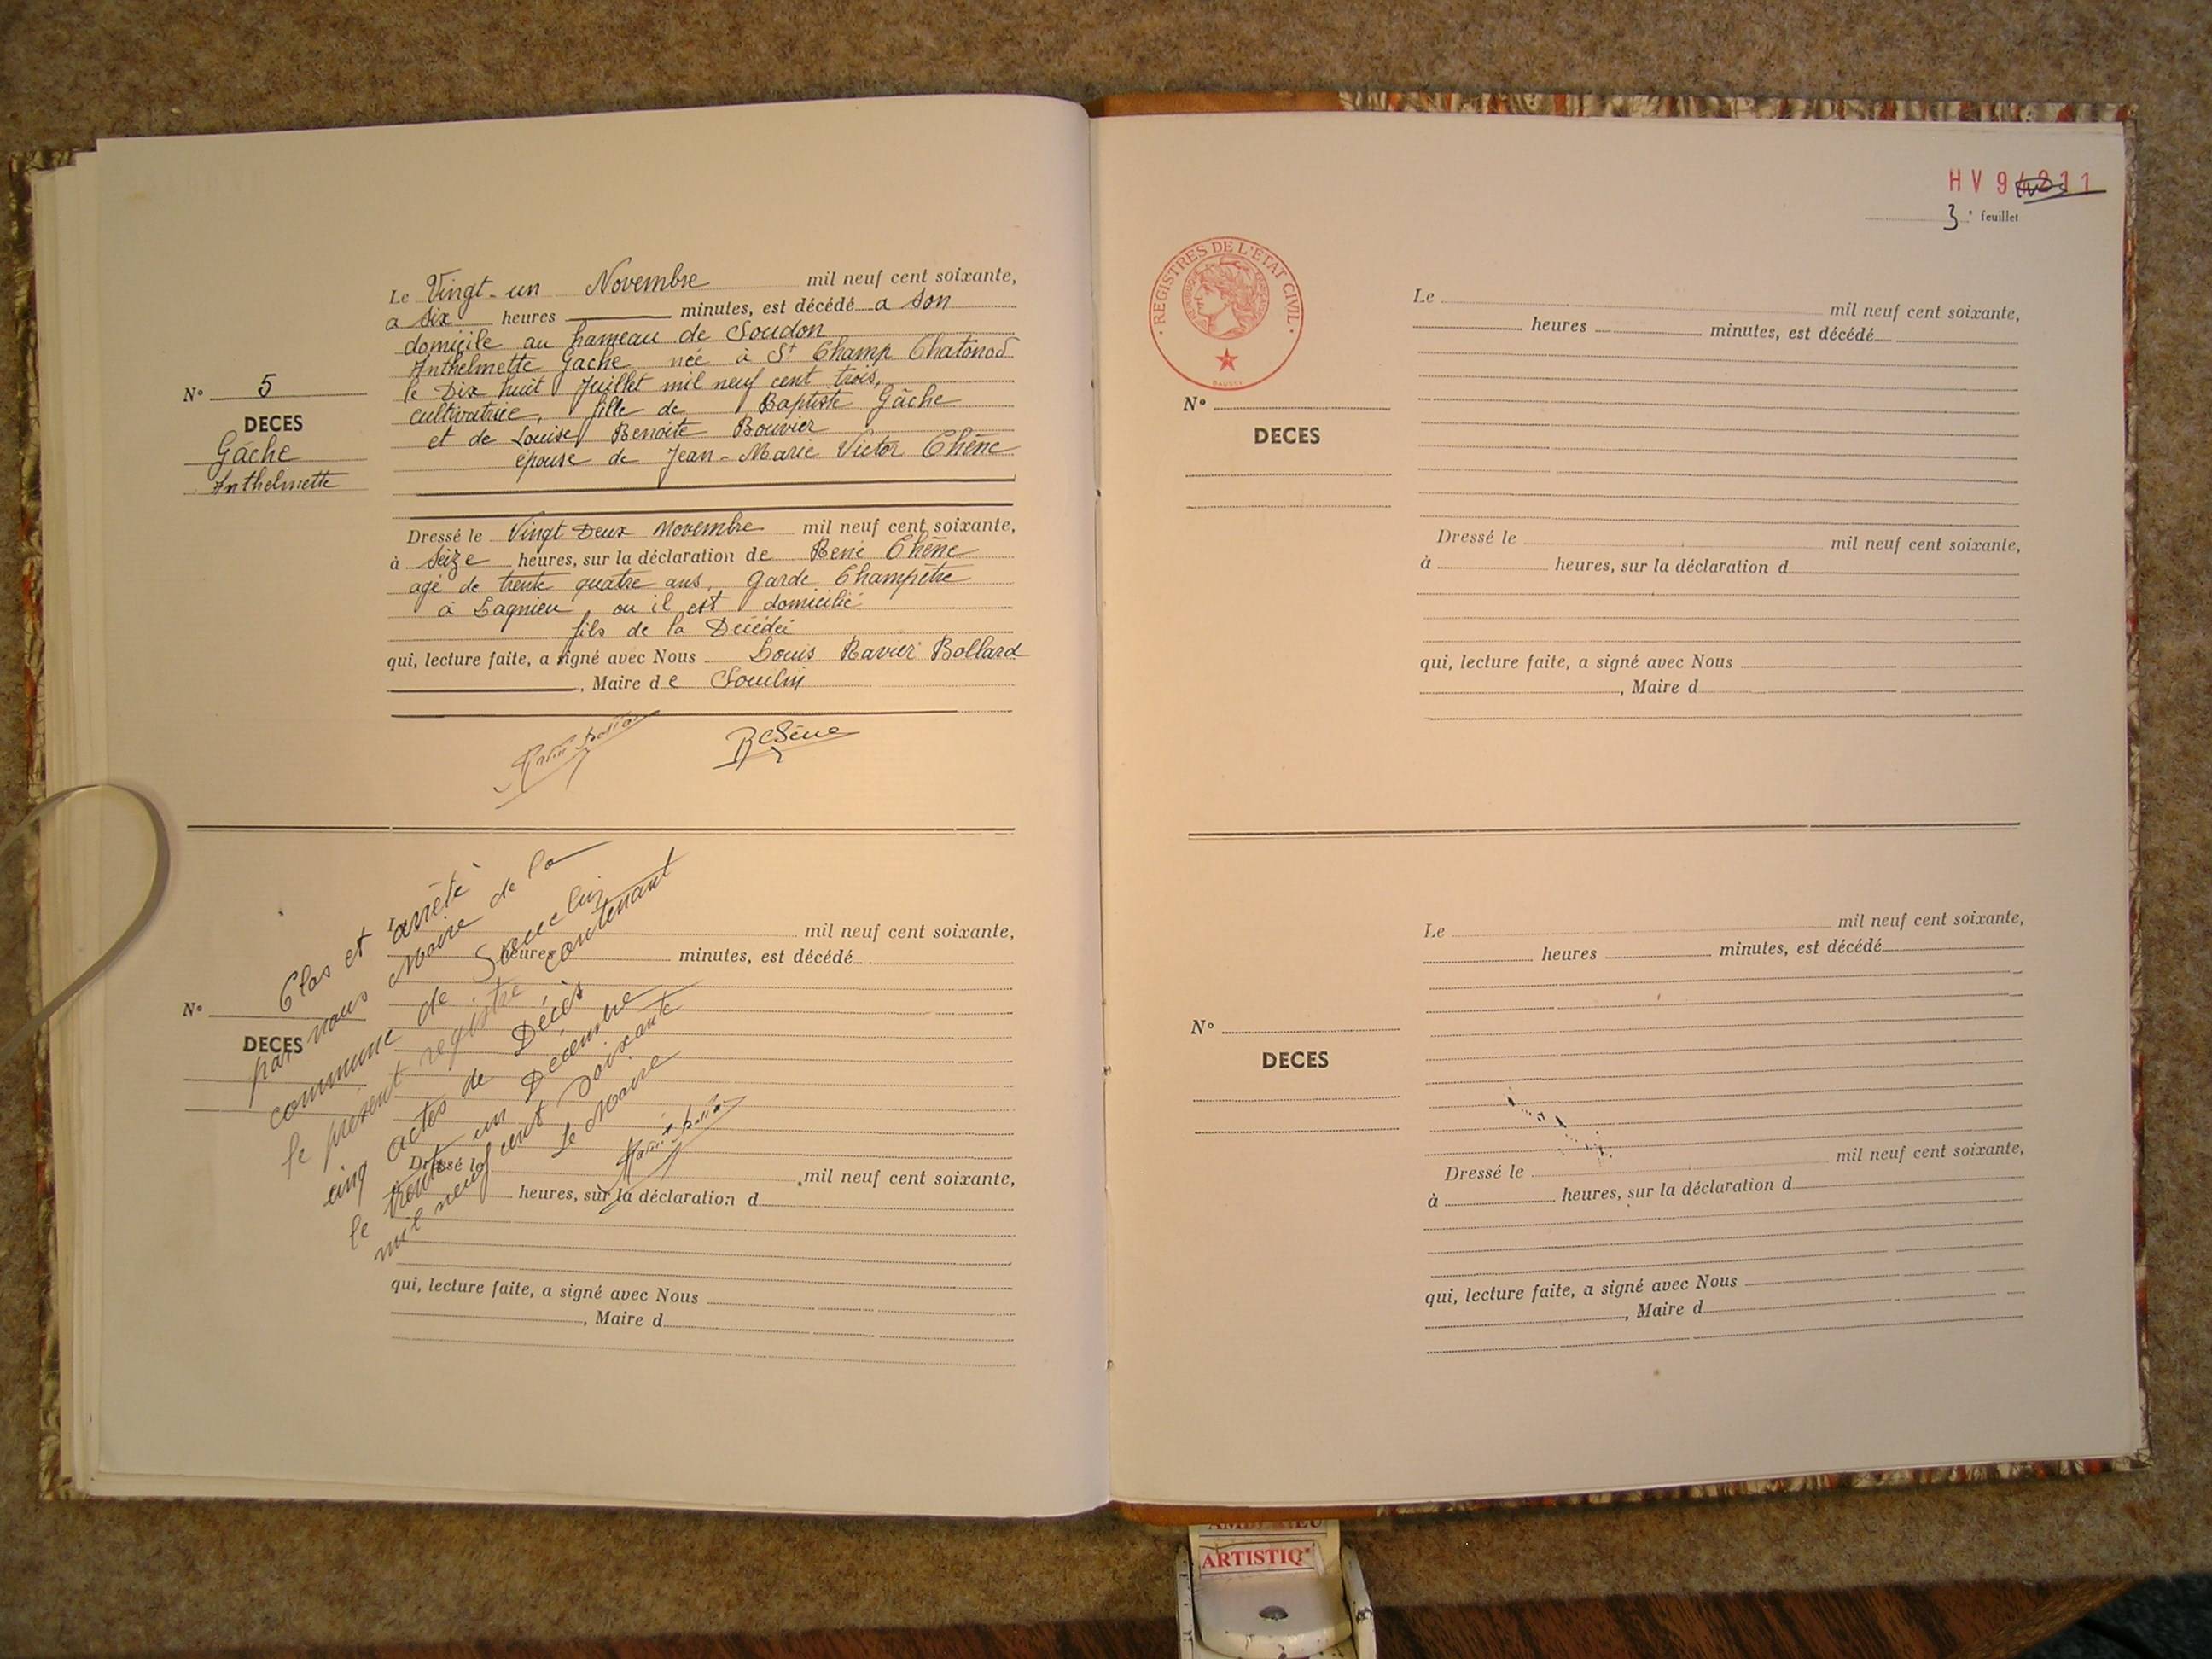 Le Vingt-un Novembre mil neuf cent soixante,
a six heures minutes, est décédé a son
domicile au hameau de Soudon
Anthelmette Gache née à St Champ Chatonod
le Dix huit Juillet mil neuf cent trois,
cultivatrice, fille de Baptiste Gâche
et de Louise Benoite Bouvier
épouse de Jean-Marie Victor Chêne
N° 5
DECES
Gâche
Anthelmette
Dressé le Vingt Deux Novembre mil neuf cent soixante,
à Seize heures, sur la déclaration de René Chêne
agé de trente quatre ans, Garde Champêtre
à Lagnieu, ou il est domicilié
fils de la Décédéé
qui, lecture faite, a signé avec Nous Louis Ravier Bollard
, Maire de Souclin
RChêne
Clos et arrêté
par nous Maire de la
commune de Souclin
le présent registre contenant
cinq actes de Décès
le trente un Décembre
mil neuf cent Soixante
Le Maire
mil neuf cent soixante,
heures minutes, est décédé
N°
DECES
Dressé le mil neuf cent soixante,
heures, sur la déclaration d
qui, lecture faite, a signé avec Nous
, Maire d
HV 94211
3e feuillet
REGISTRES DE L'ÉTAT CIVIL
Le mil neuf cent soixante,
heures minutes, est décédé
N°
DECES
Dressé le mil neuf cent soixante,
à heures, sur la déclaration d
qui, lecture faite, a signé avec Nous
, Maire d
Le mil neuf cent soixante,
heures minutes, est décédé
N°
DECES
Dressé le mil neuf cent soixante,
à heures, sur la déclaration d
qui, lecture faite, a signé avec Nous
, Maire d
ARTISTIQ